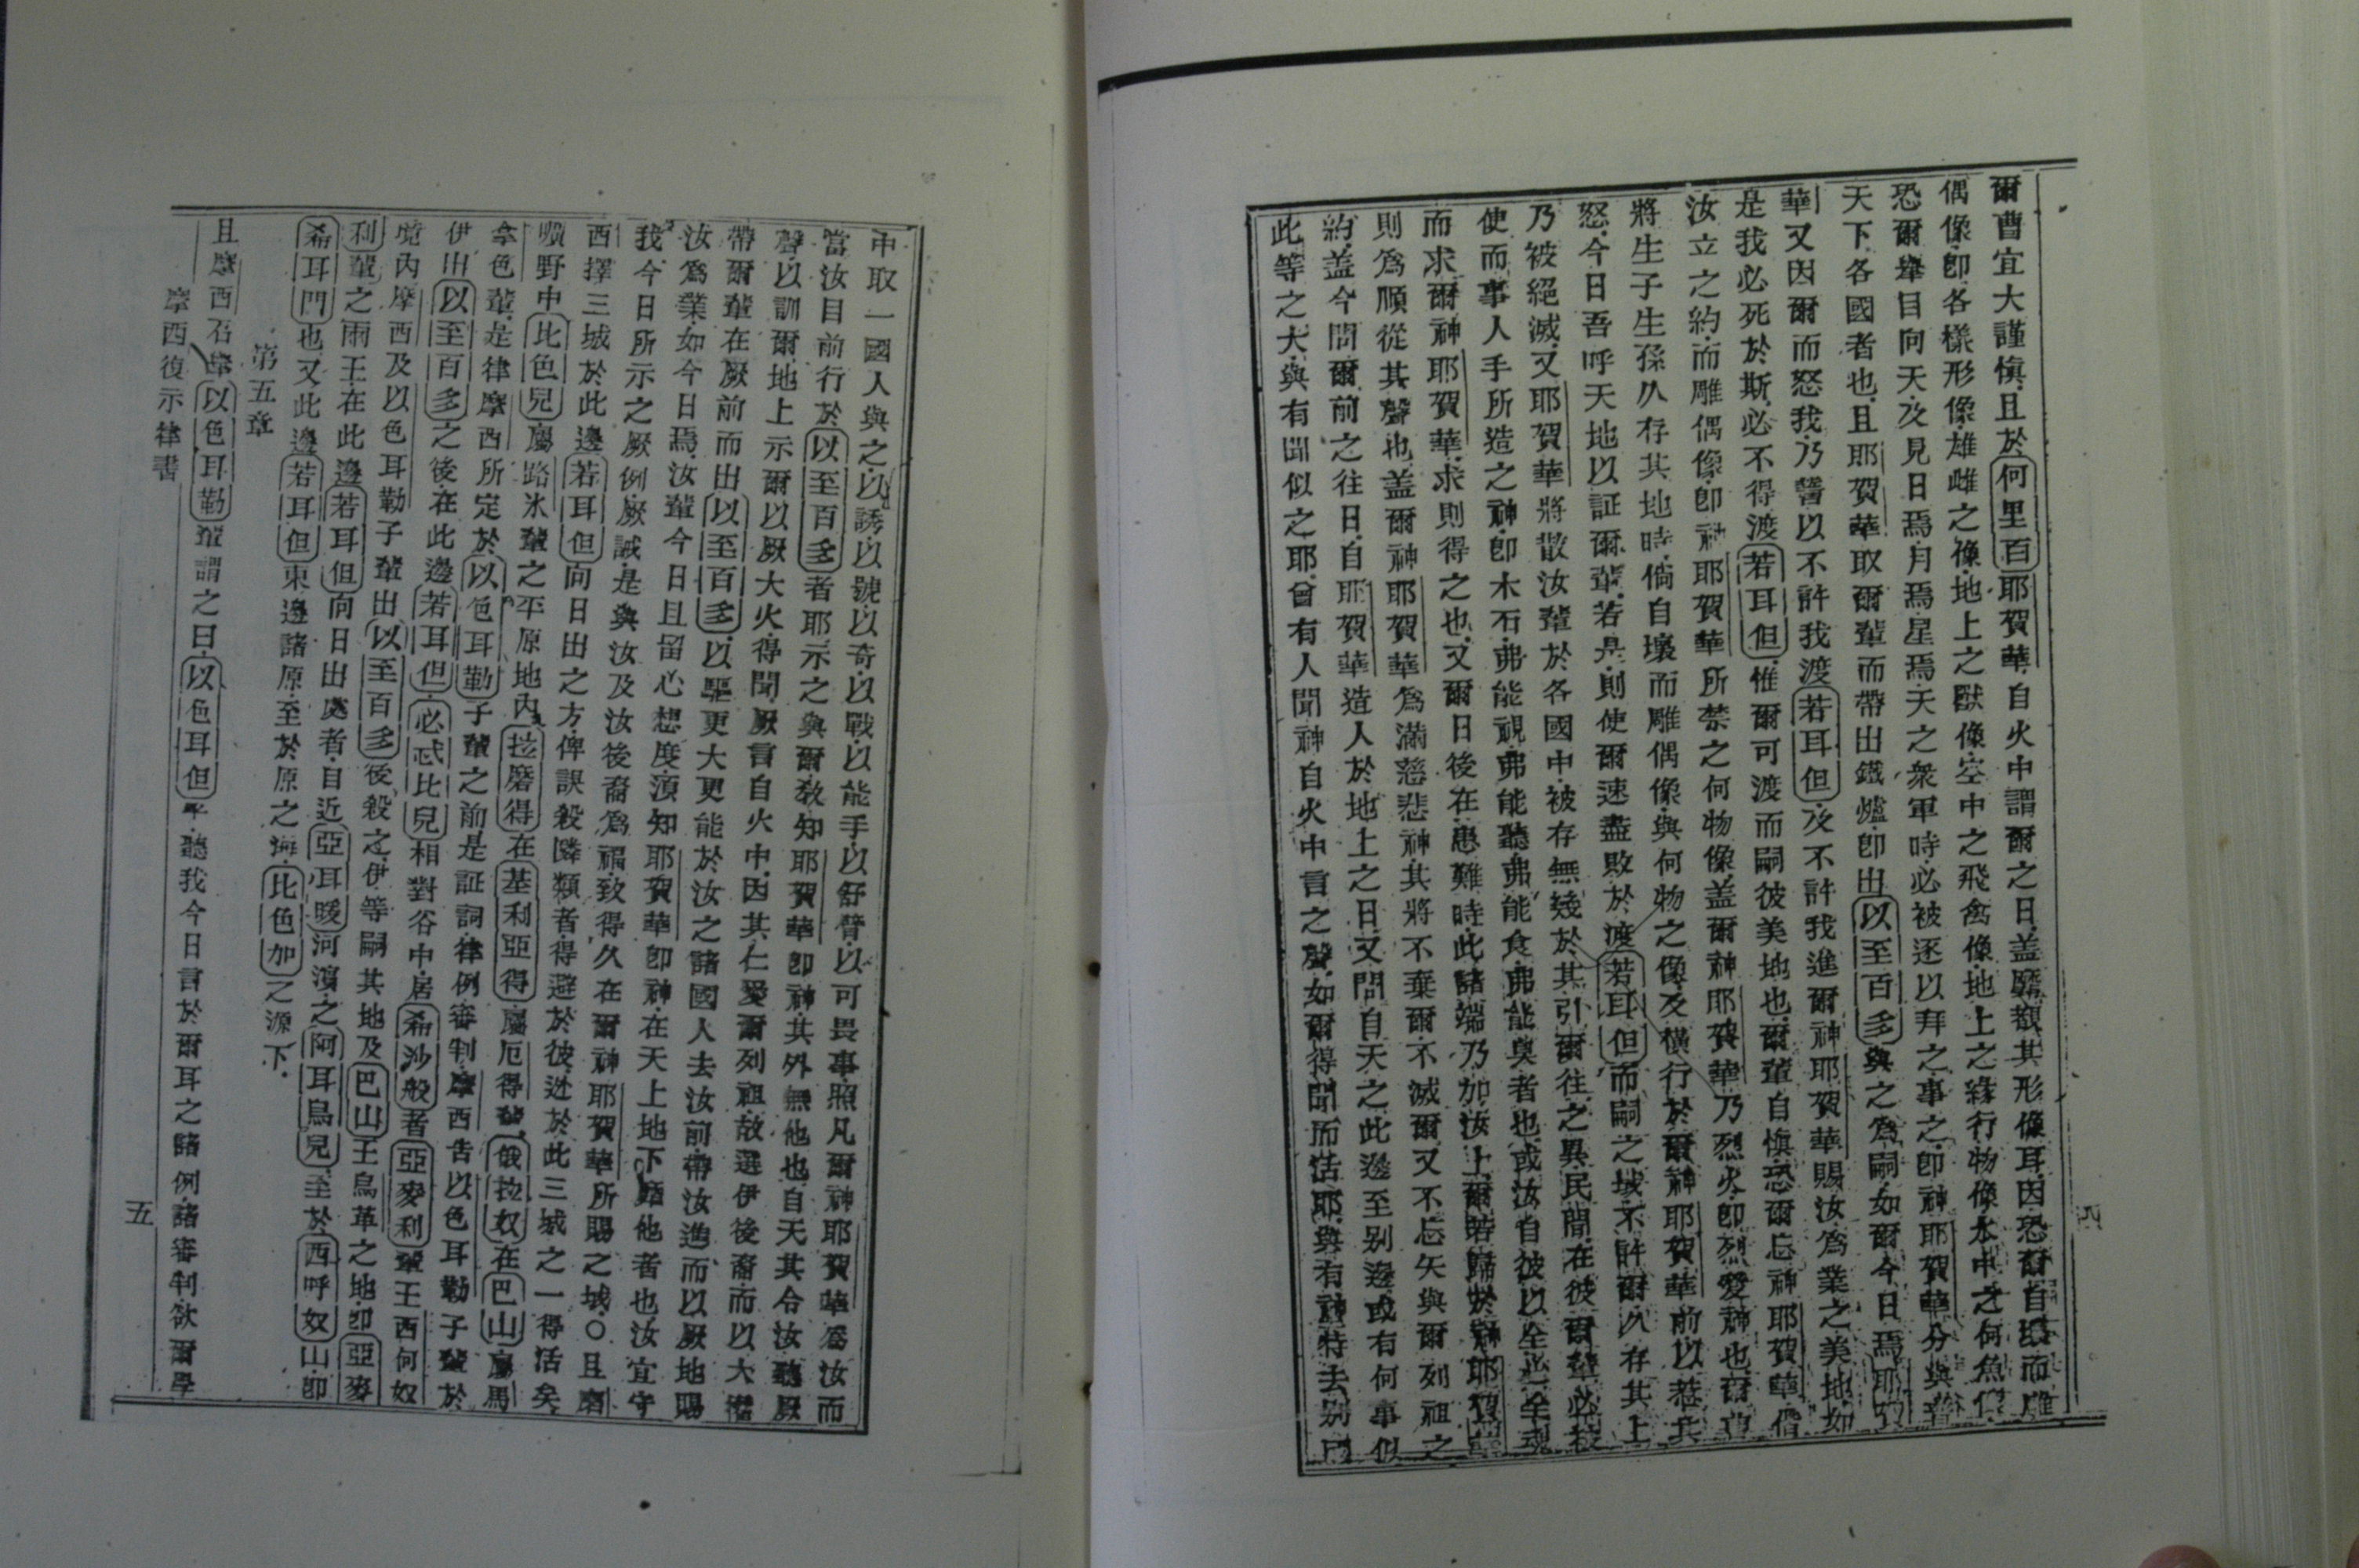 爾曹宜大謹慎、且於何里百耶賀華自火中謂爾之日、盖靡覩其形像耳、因恐爾自壞而雕
偶像、卽各樣形像、雄雌之像、地上之獸像、空中之飛禽像、地上之緣行物像、水中之何魚像、
恐爾舉目向天、及見日焉、月焉、星焉、天之衆軍時、必被逐以拜之事之、卽神耶賀華分與普
天下各國者也、且耶賀華取爾輩而帶出鐵爐、卽出以至百多、與之為嗣、如爾今日焉、耶賀
華又因爾而怒我、乃誓以不許我渡若耳但、及不許我進爾神耶賀華賜汝為業之美地、如
是我必死於斯、必不得渡若耳但、惟爾可渡而嗣彼美地也、爾輩自慎、恐爾忘神耶賀華偕
汝立之約、而雕偶像、卽神耶賀華所禁之何物像、盖爾神耶賀華乃烈火、卽烈愛神也、爾
將生子生孫久存其地時、倘自壞而雕偶像、與何物之像、及橫行於爾神耶賀華前以惹其
怒、今日吾呼天地以証爾輩、若是、則使爾速盡敗於渡若耳但而嗣之域、不許爾久存其上
乃被絕滅、又耶賀華將散汝輩於各國中、被存無幾於其引爾往之異民間、在彼爾輩必被
使而事人手所造之神、卽木石、弗能視、弗能聽、弗能食、弗能臭者也、或汝自彼以全心全魂
而求爾神耶賀華、求則得之也、又爾日後在患難時、此諸端乃加汝上、爾若歸於神耶賀華
則為順從其聲也、盖爾神耶賀華為滿慈悲神、其將不棄爾、不滅爾、又不忘矢與爾列祖之
約、盖今問爾前之往日、自耶賀華造人於地上之日、又問自天之此邊至別邊、或有何事似
此等之大、與有聞似之耶、曾有人聞神自火中言之聲、如爾得聞而活耶、與有神特去別國
四
中取一國人與之、以誘、以號、以奇、以戰、以能手、以舒臂、以可畏事、照凡爾神耶賀華為汝而
當汝目前行於以至百多者耶、示之與爾敎知耶賀華卽神、其外無他也、自天其令汝聽厥
聲、以訓爾、地上示爾以厥大火、得聞厥言自火中、因其仁愛爾列祖、故選伊後裔、而以大權
帶爾輩在厥前而出以至百多、以驅更大更能於汝之諸國人去汝前、帶汝進而以厥地賜
汝為業、如今日焉、汝輩今日且留心想度、須知耶賀華卽神、在天上地下靡他者也、汝宜守
我今日所示之厥例、厥誡、是與汝及汝後裔為福、致得久在爾神耶賀華所賜之域、○且摩
西擇三城於此邊若耳但向日出之方、俾誤殺隣類者、得避於彼、逃於此三城之一得活矣、
曠野中比色兒、屬路氷輩之平原地內、拉磨得在基利亞得、屬厄得輩、俄拉奴在巴山、屬馬
拿色輩、是律摩西所定於以色耳勒子輩之前、是証詞、律例、審判、摩西吿以色耳勒子輩於
伊出以至百多之後、在此邊若耳但、必忒比兒相對谷中、居希沙般者、亞麥利輩王西何奴
境內、摩西及以色耳勒子輩出以至百多後殺之、伊等嗣其地及巴山王烏革之地、卽亞麥
利輩之兩王、在此邊若耳但向日出處者、自近亞耳暖河濱之阿耳烏兒、至於西呼奴山、卽
希耳門也、又此邊若耳但東邊諸原、至於原之海、比色加之源下、
第五章
摩西復示律書
且摩西召集以色耳勒輩謂之曰、以色耳但乎、聽我今日言於爾耳之諸例、諸審判、欲爾學
五